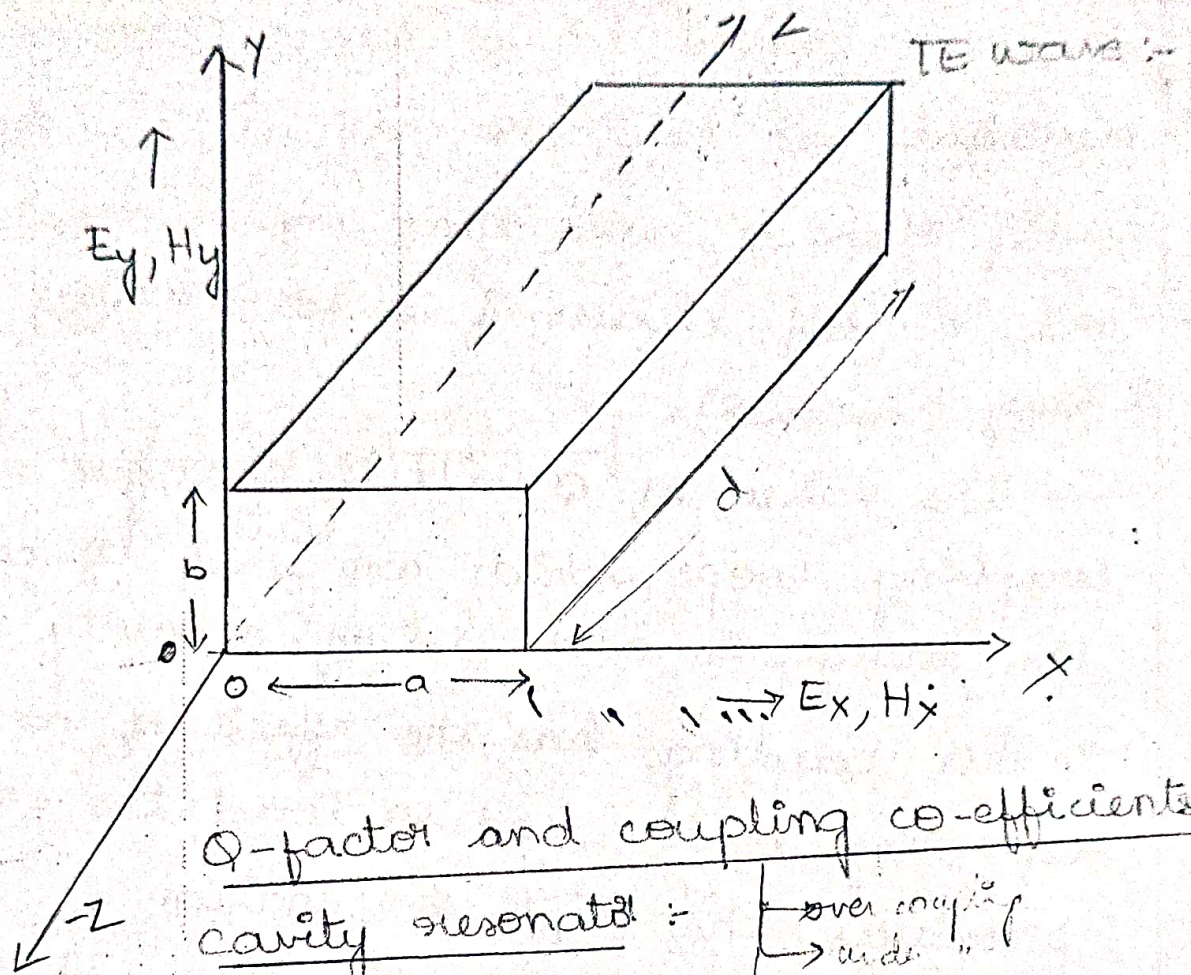 Y
Z
TE wave :-
Ey, Hy
d
b
0
0 a
Ex, Hx
X
-Z
Q-factor and coupling co-efficients
cavity resonator :-
over coupling
unde "